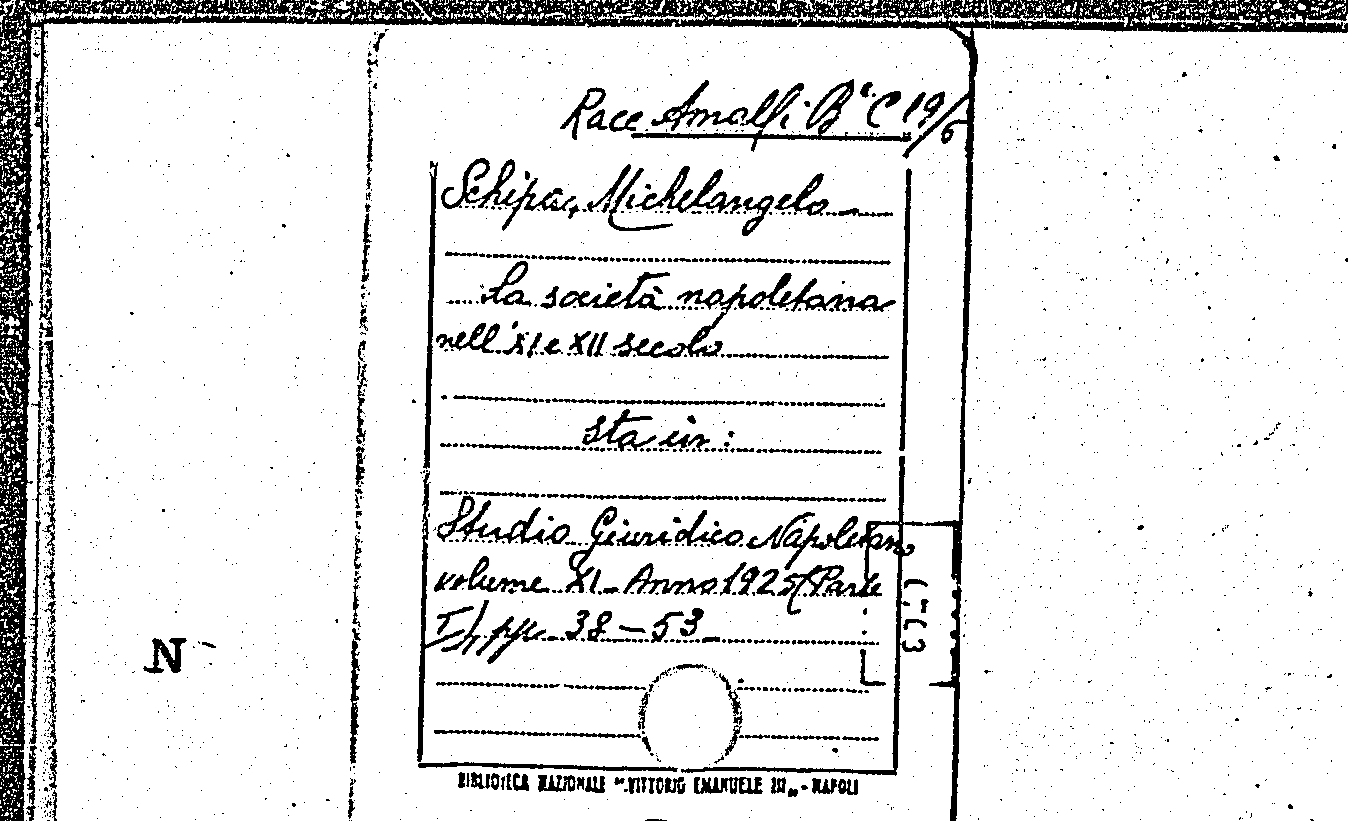 Racc. Amalfi Bª C 19/6
Schipa, Michelangelo
La società napoletana
nell'XI e XII secolo
sta in:
Studio Giuridico Napoletano
volume XI - Anno 1925 (Parte
I), pp. 38-53
BIBLIOTECA NAZIONALE "VITTORIO EMANUELE III" - NAPOLI
N